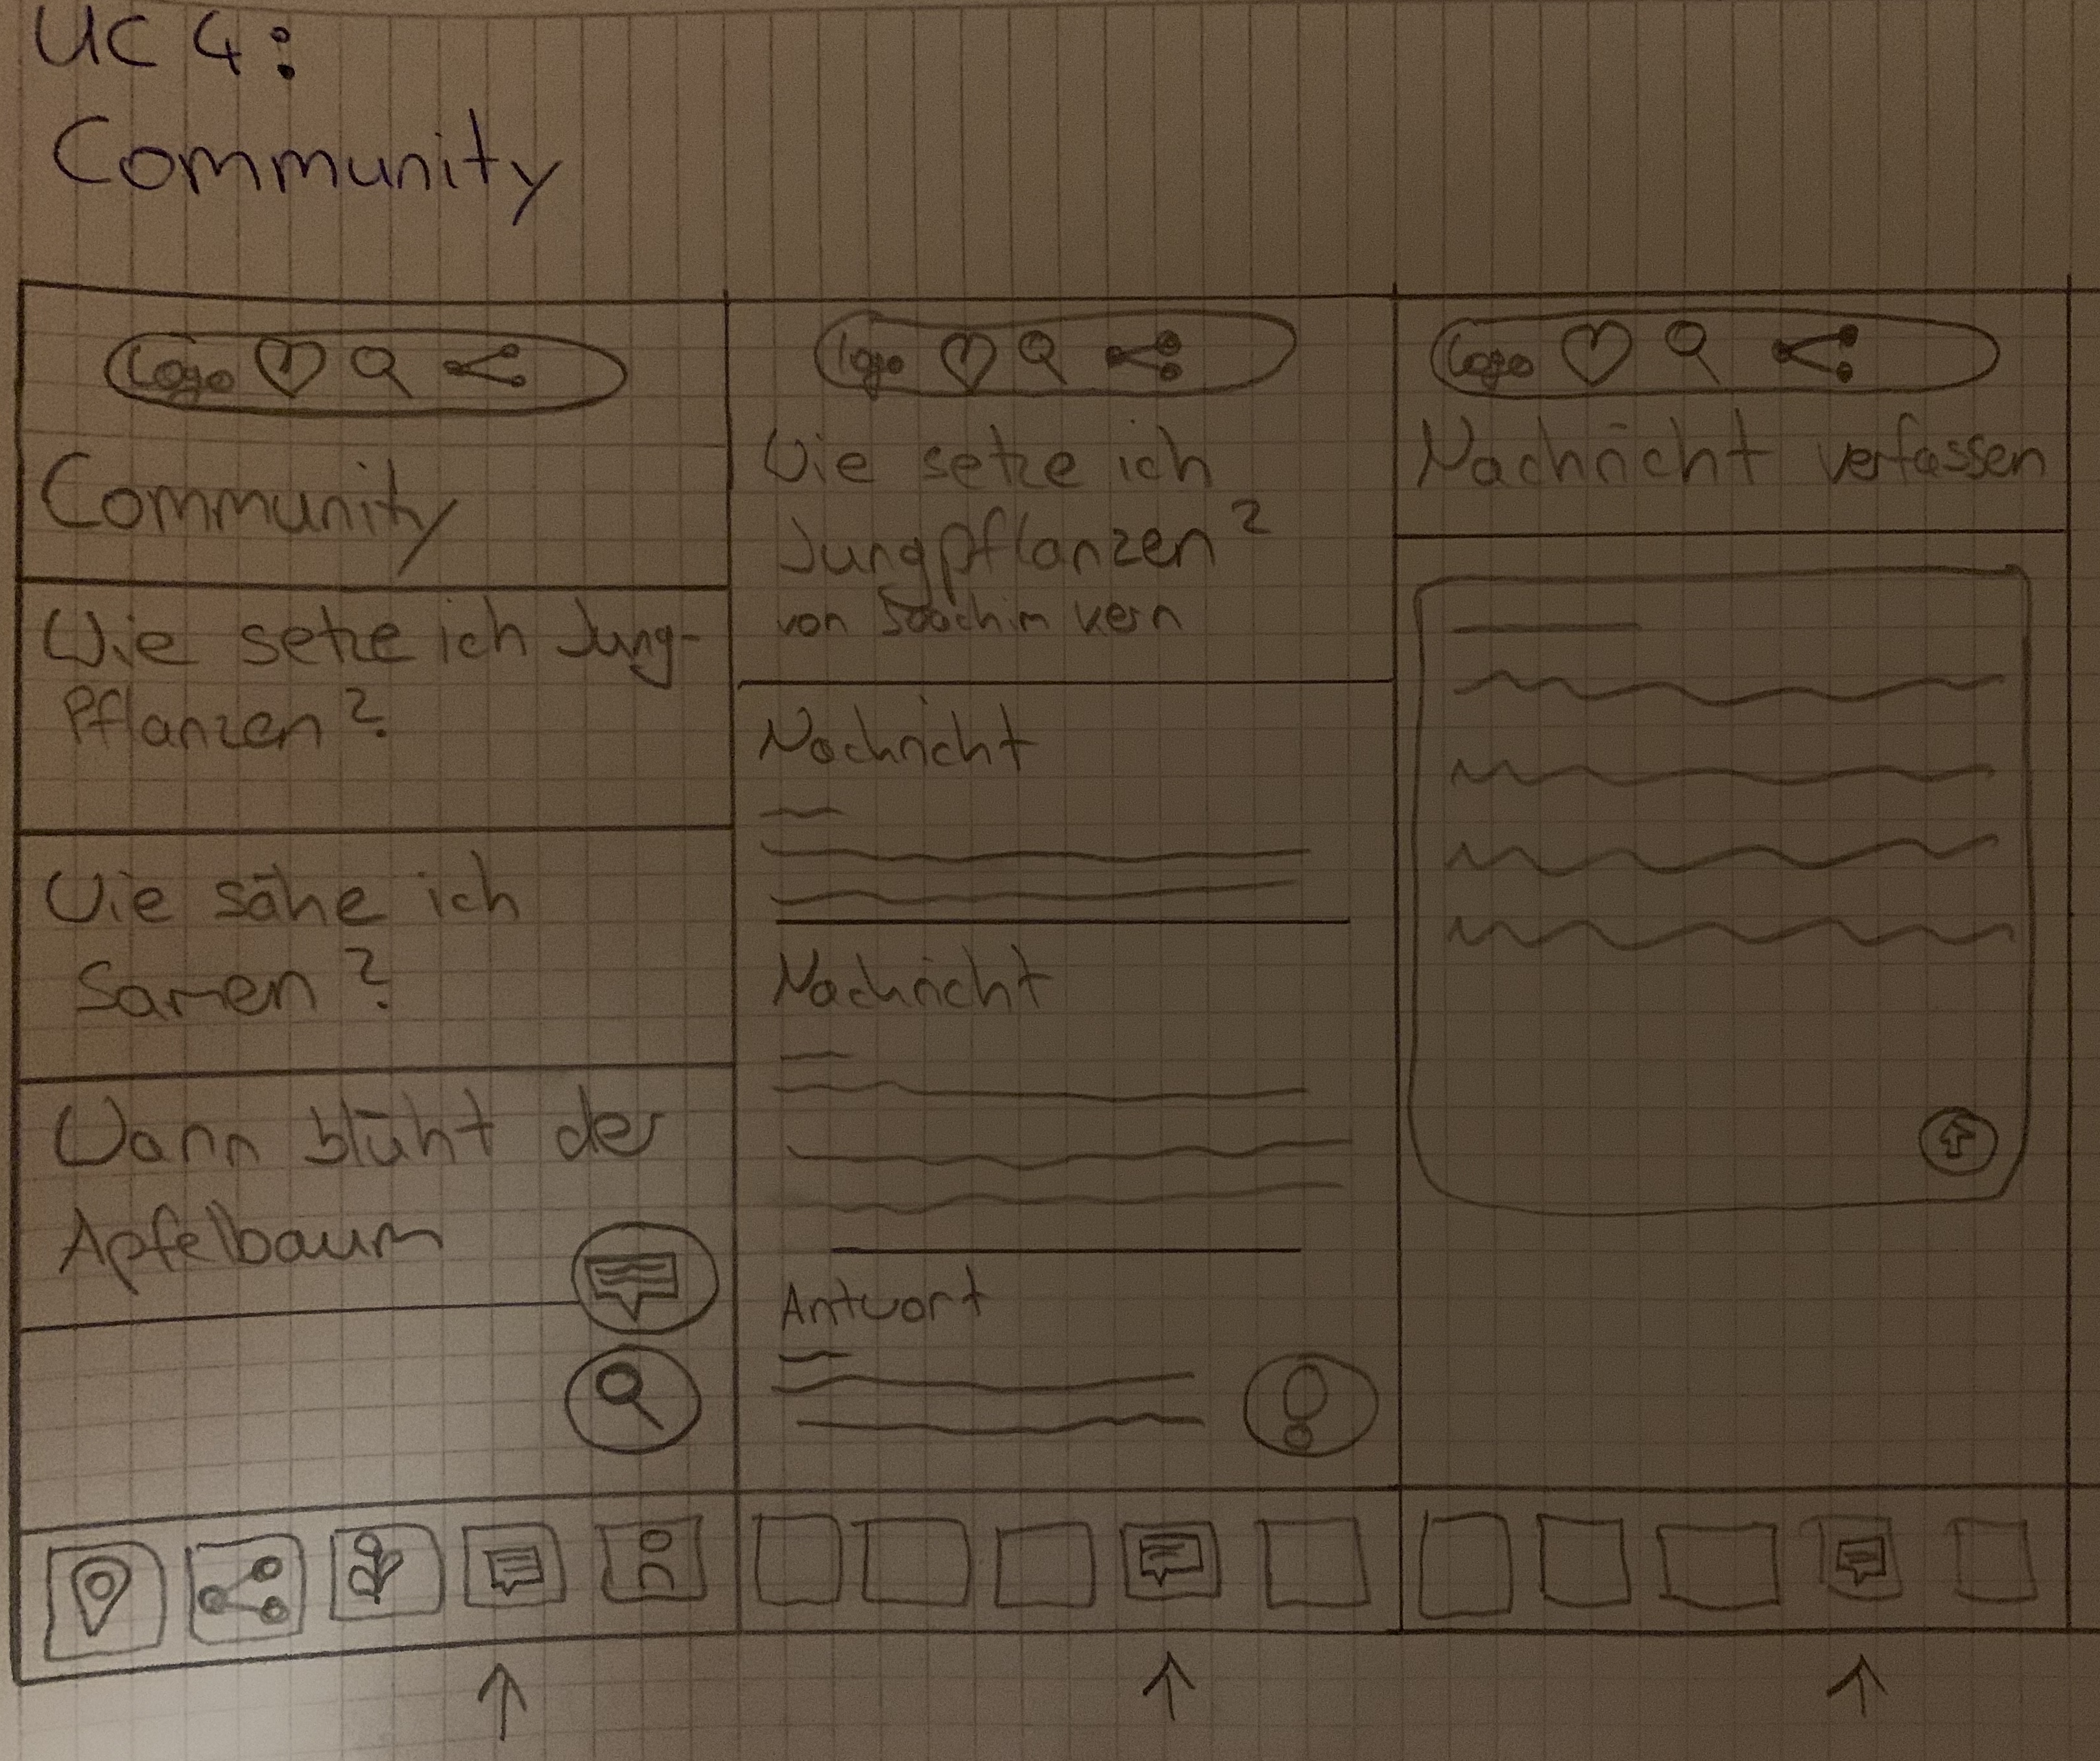 UC 4:
Community
Logo
Community
Wie setze ich Jung-
Pflanzen?
Wie sähe ich
Samen?
Wann blüht der
Apfelbaum
Logo
Wie setze ich
Jungpflanzen?
von Joachim Kern
Nachricht
Nachricht
Antwort
Logo
Nachricht verfassen